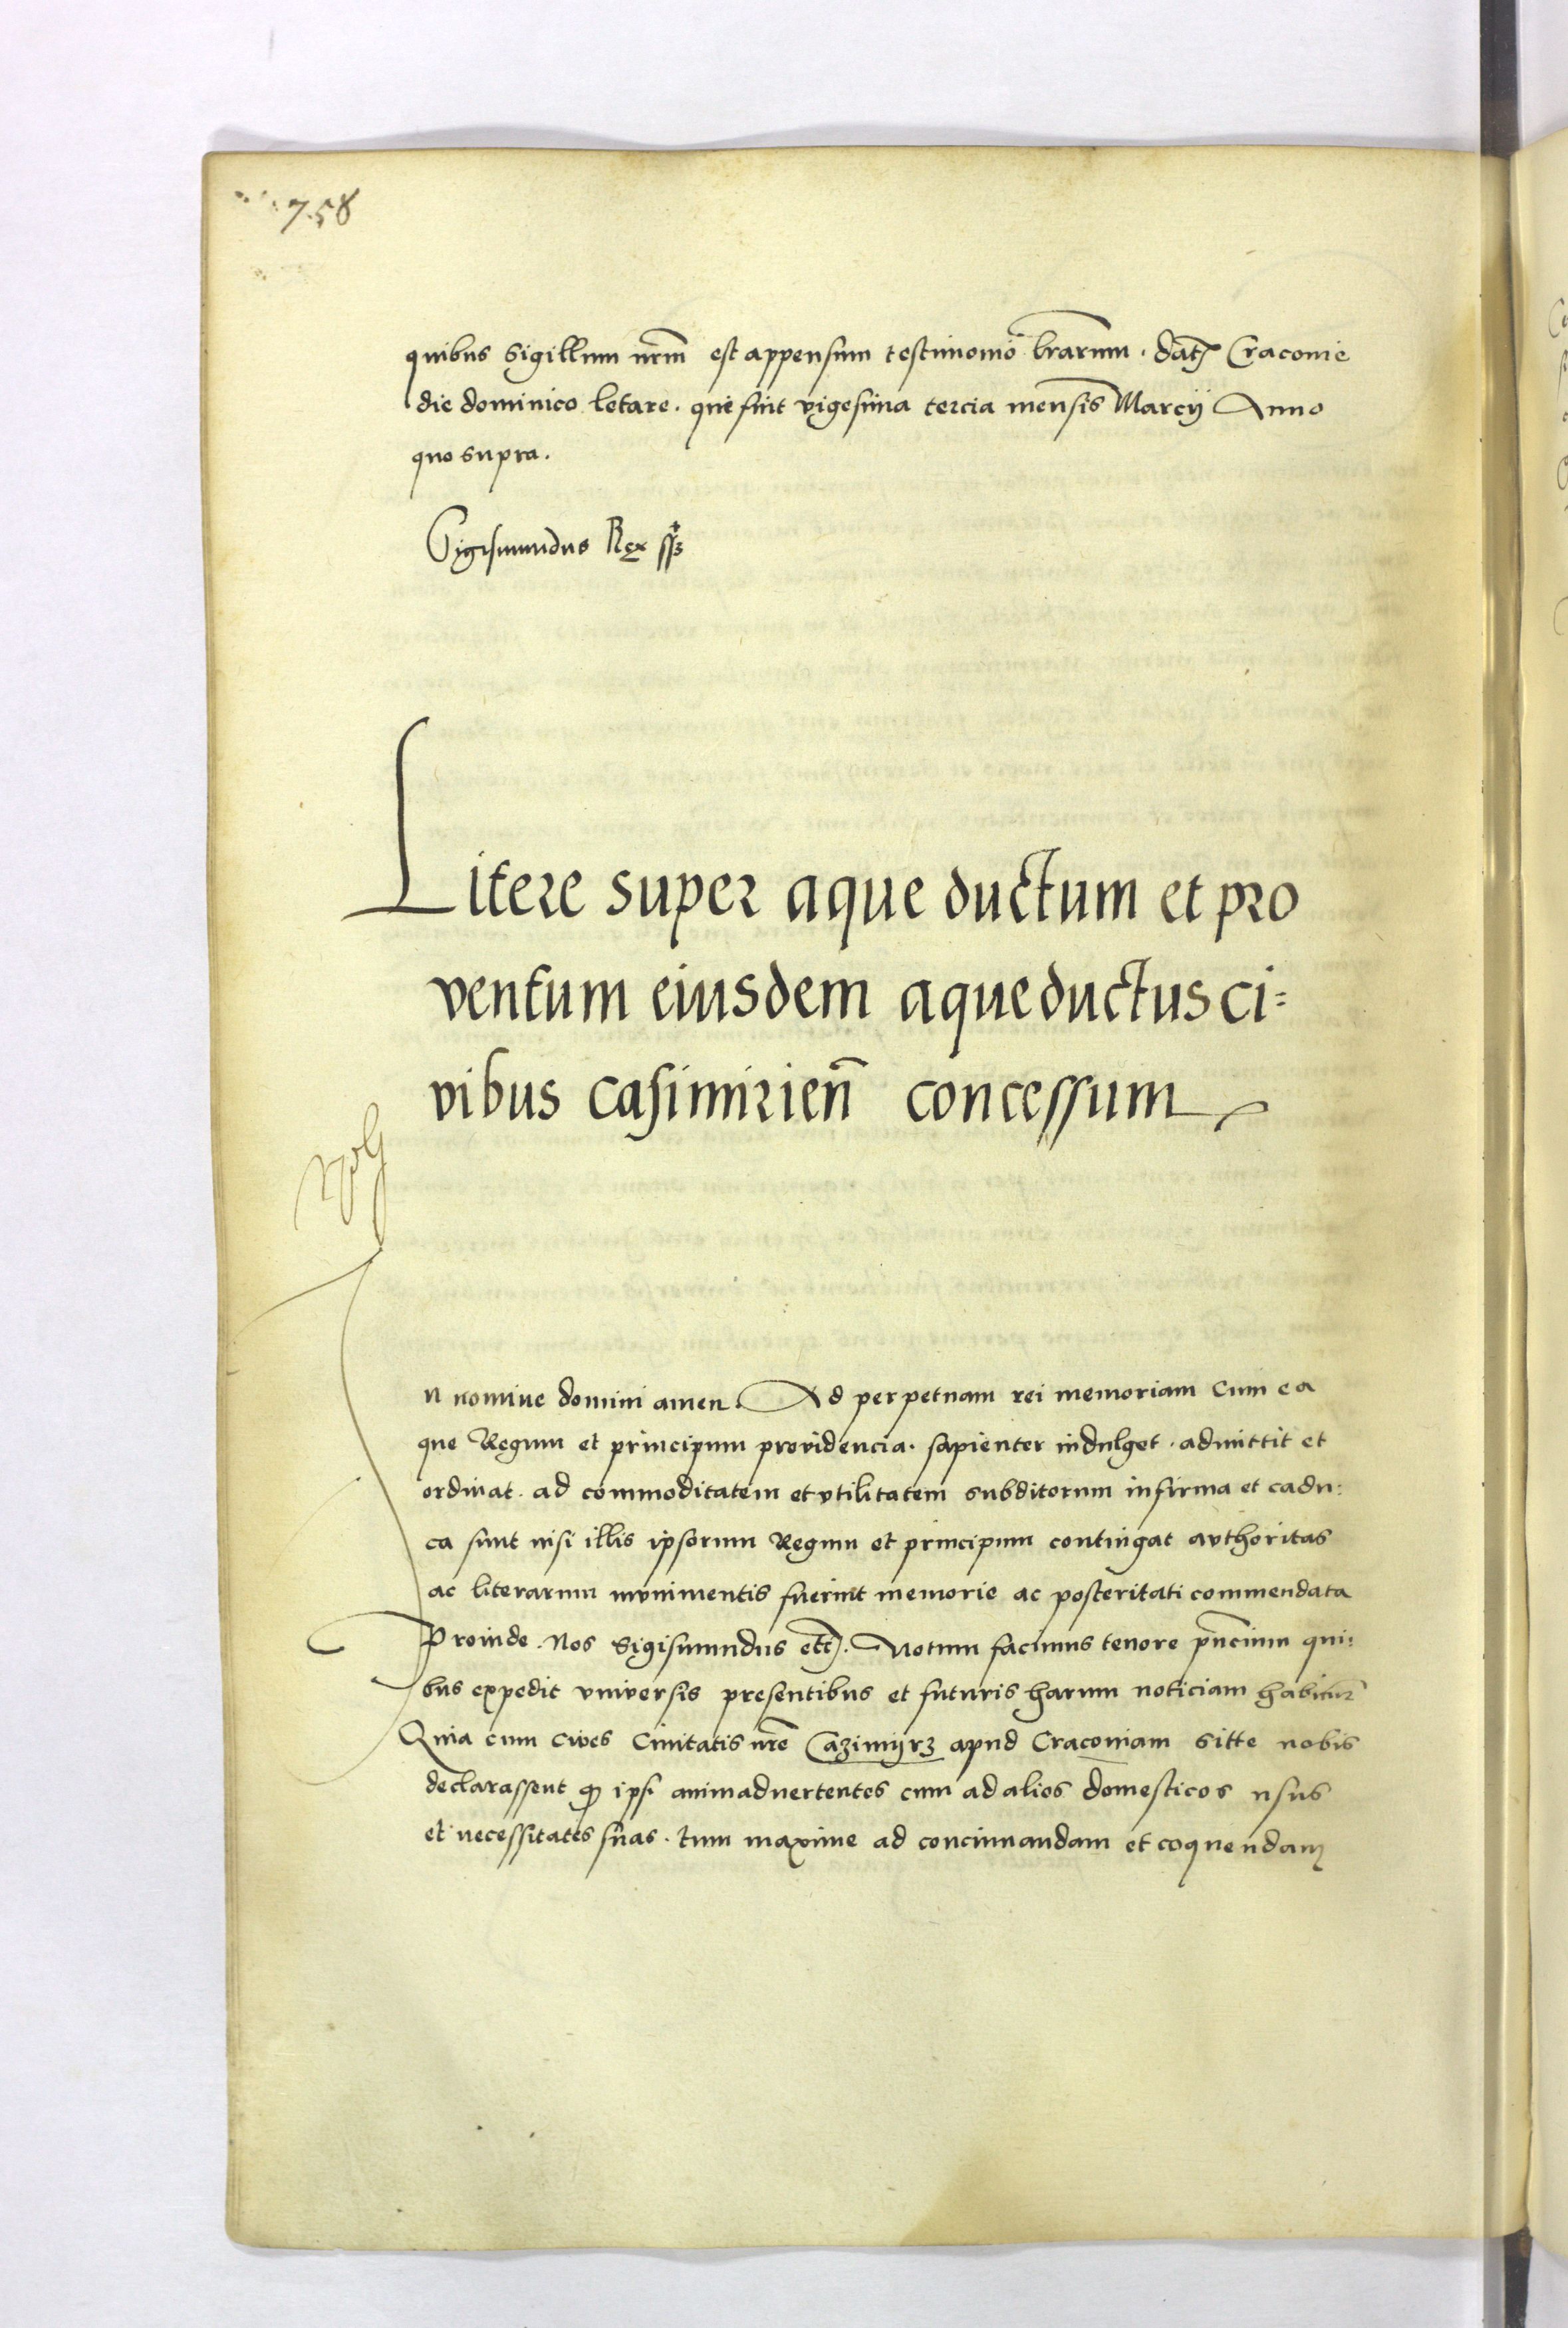 758
quibus Sigillum nrm̄ est appensum testimonio lrarum. dat Craconie
die dominico letare. que fuit vigesima tercia mensis Marcij Anno
quo supra.
Sigismundus Rex ss
Litere super aque ductum et pro
ventum eiusdem aqueductus ci=
vibus Casimirien̄ concessum
n nomine domini amen. Ad perpetuam rei memoriam Cum ea
que Regum et principum providencia. sapienter indulget. admittit et
ordinat. ad commoditatem et vtilitatem subditorum infirma et cadu:
ca sunt nisi illis ipsorum Regum et principum contingat avthoritas
ac literarum mvnimentis fuerint memorie ac posteritati commendata
Proinde. Nos Sigismundus etc. Notum facimus tenore pn̄cium qui:
bus expedit vniversis presentibus et futuris harum noticiam habitur̄
Quia cum Cives Civitatis nr̄e Cazimijrz apud Cracoviam sitte nobis
declarassent ipsi animadvertentes cum ad alios domesticos usus
et necessitates suas. tum maxime ad concinnandam et coquendam